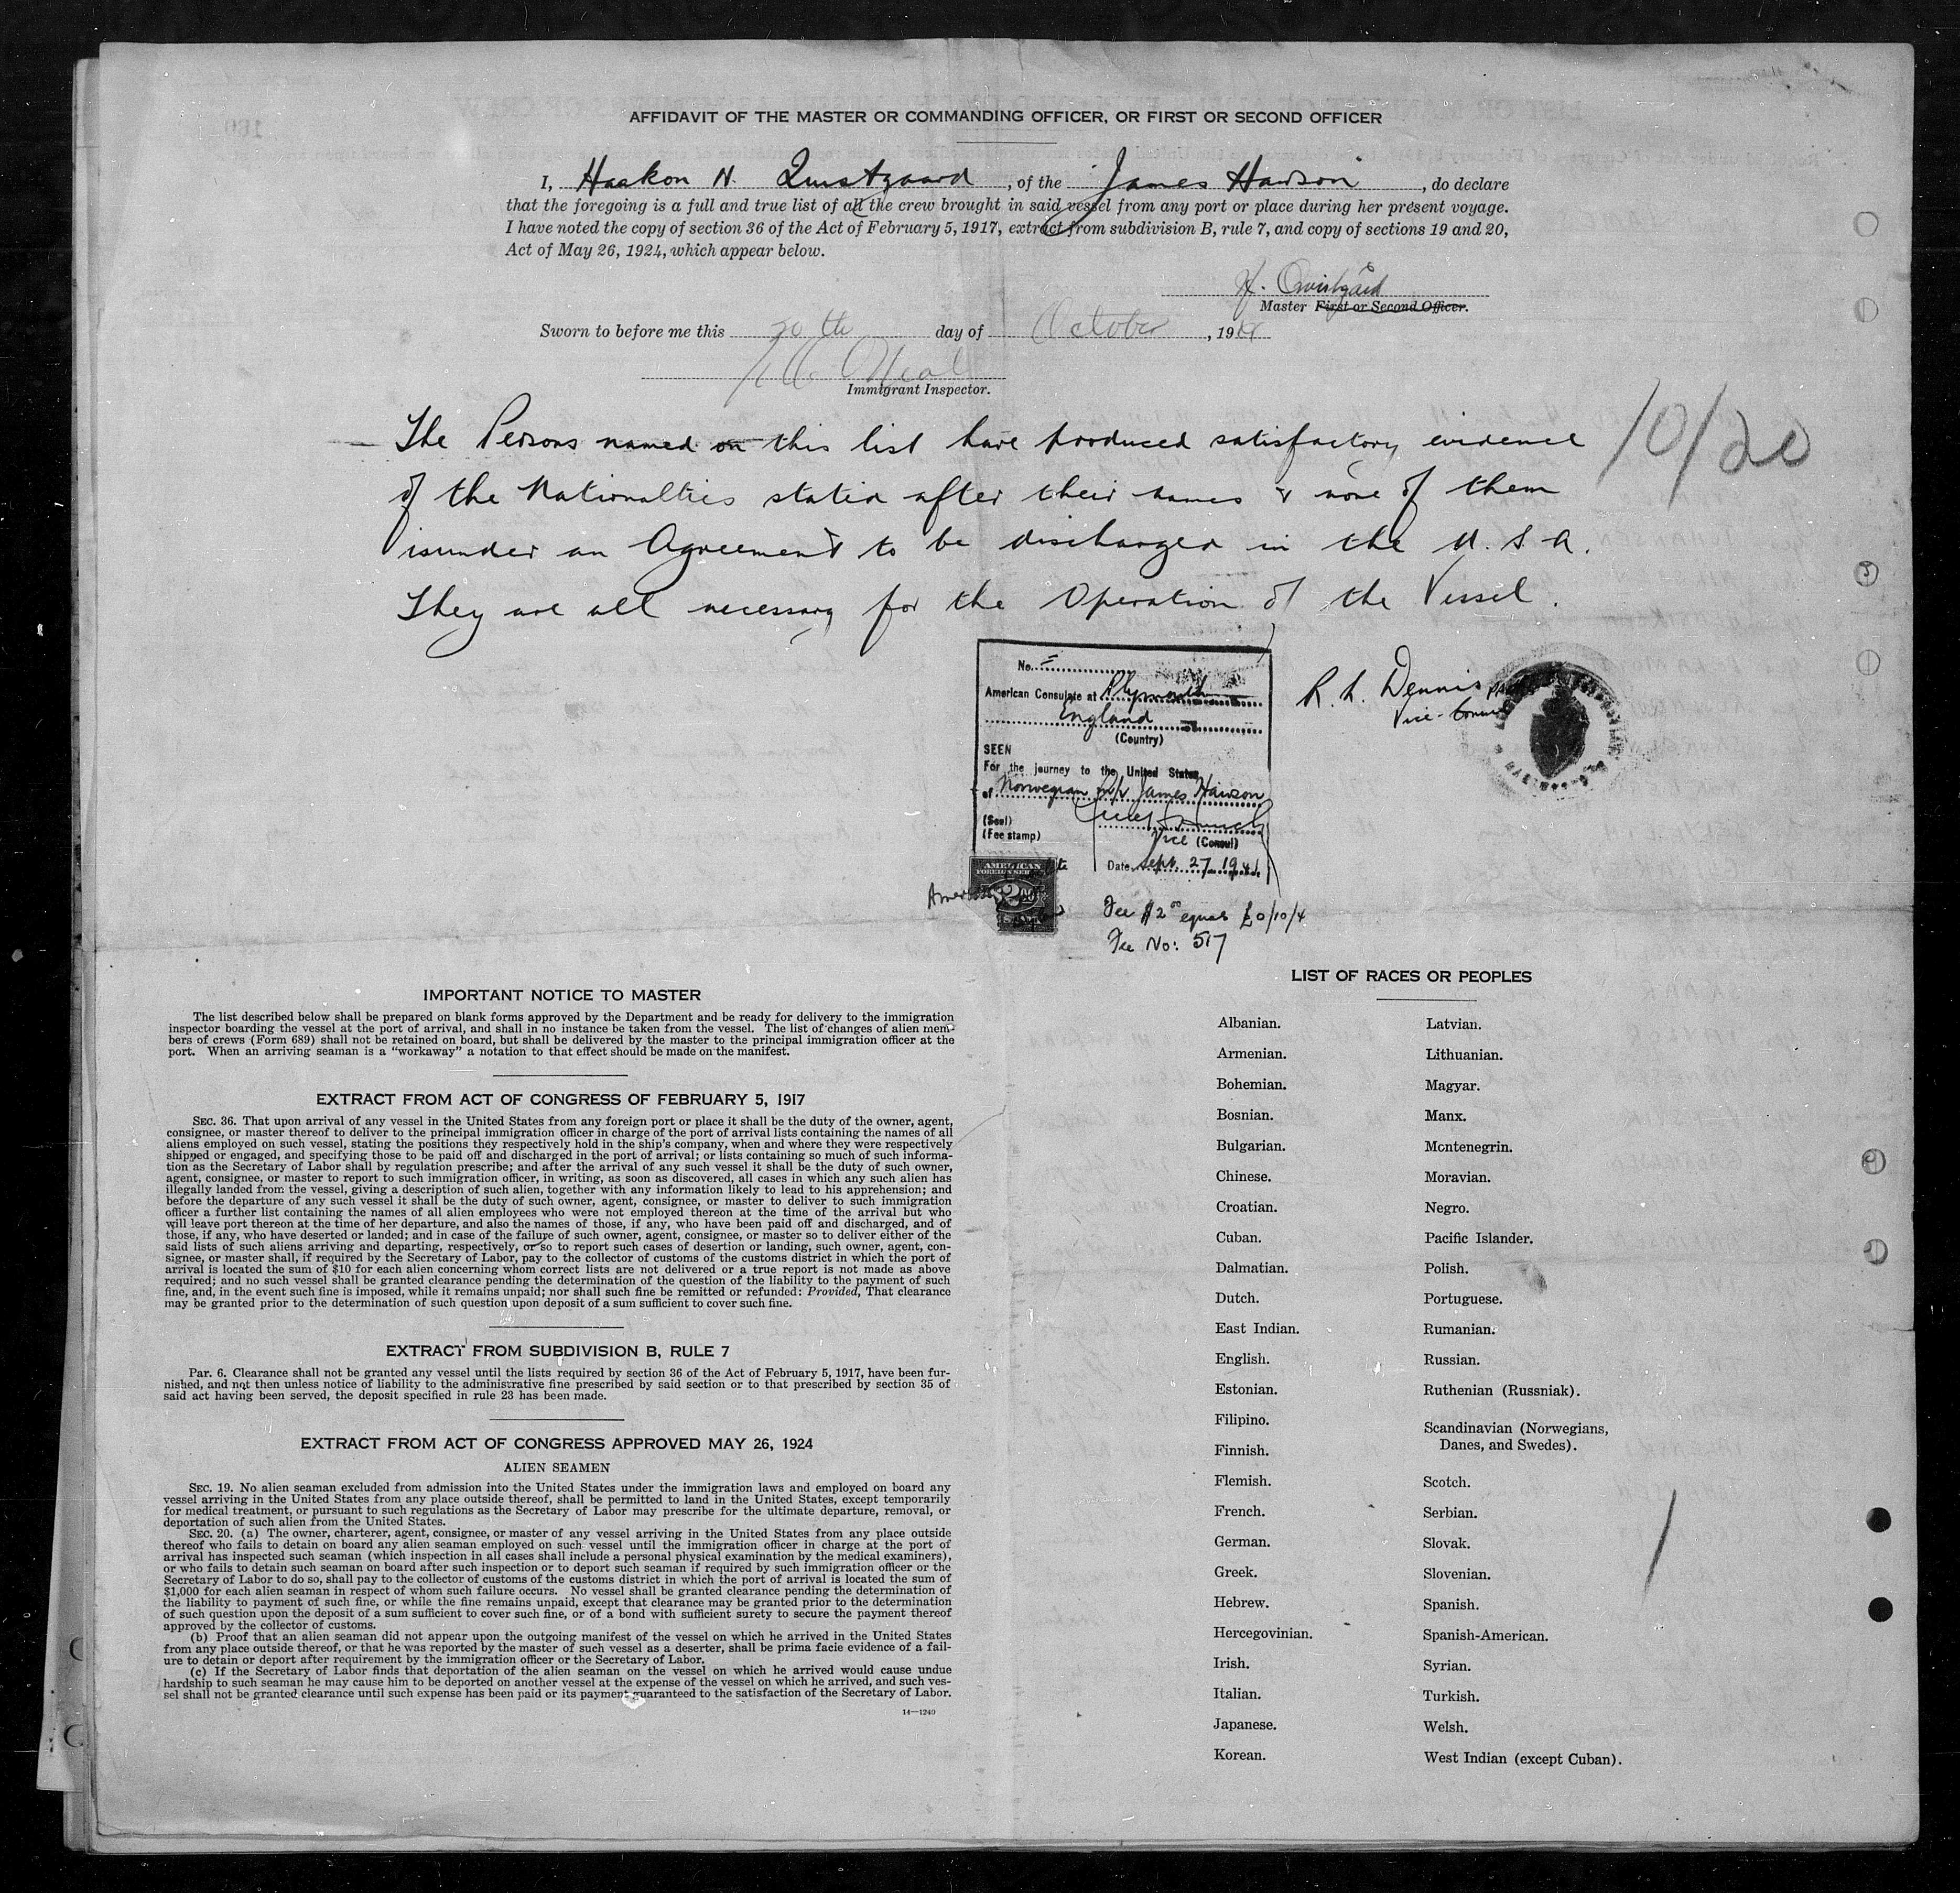 AFFIDAVIT OF THE MASTER OR COMMANDING OFFICER, OR FIRST OR SECOND OFFICER
I, Haakon N. , of the James Hawson, do declare
that the foregoing is a full and true list of all the crew brought in said vessel from any port or place during her present voyage.
I have noted the copy of section 36 of the Act of February 5, 1917, extract from subdivision B, rule 7, and copy of sections 19 and 20,
Act of May 26, 1924, which appear below.
Master First or Second Officer.
Sworn to before me this 20th day of October, 19
Immigrant Inspector.
The Persons named on this list have produced satisfactory evidence
of the Nationalties stated after their names & none of them
isunder an Agreement to be discharged in the U.S.A.
They are all necessary for the Operation of the Vessel.
10/20
No.
American Consulate at Plymouth
England
(Country)
SEEN
For the journey to the United States
of Norwegian m/v James Hawson
(Seal)
(Fee stamp)
Vice (Consul)
Date Sept. 27, 1941.
R. L. Dennis
Vice-Consul
AMERICAN
FOREIGN SER
$2.00
Fee $2.00 equals £0/10/4
Fee No: 517
IMPORTANT NOTICE TO MASTER
The list described below shall be prepared on blank forms approved by the Department and be ready for delivery to the immigration
inspector boarding the vessel at the port of arrival, and shall in no instance be taken from the vessel. The list of changes of alien mem-
bers of crews (Form 689) shall not be retained on board, but shall be delivered by the master to the principal immigration officer at the
port. When an arriving seaman is a “workaway” a notation to that effect should be made on the manifest.
EXTRACT FROM ACT OF CONGRESS OF FEBRUARY 5, 1917
SEC. 36. That upon arrival of any vessel in the United States from any foreign port or place it shall be the duty of the owner, agent,
consignee, or master thereof to deliver to the principal immigration officer in charge of the port of arrival lists containing the names of all
aliens employed on such vessel, stating the positions they respectively hold in the ship's company, when and where they were respectively
shipped or engaged, and specifying those to be paid off and discharged in the port of arrival; or lists containing so much of such informa-
tion as the Secretary of Labor shall by regulation prescribe; and after the arrival of any such vessel it shall be the duty of such owner,
agent, consignee, or master to report to such immigration officer, in writing, as soon as discovered, all cases in which any such alien has
illegally landed from the vessel, giving a description of such alien, together with any information likely to lead to his apprehension; and
before the departure of any such vessel it shall be the duty of such owner, agent, consignee, or master to deliver to such immigration
officer a further list containing the names of all alien employees who were not employed thereon at the time of the arrival but who
will leave port thereon at the time of her departure, and also the names of those, if any, who have been paid off and discharged, and of
those, if any, who have deserted or landed; and in case of the failure of such owner, agent, consignee, or master so to deliver either of the
said lists of such aliens arriving and departing, respectively, or so to report such cases of desertion or landing, such owner, agent, con-
signee, or master shall, if required by the Secretary of Labor, pay to the collector of customs of the customs district in which the port of
arrival is located the sum of $10 for each alien concerning whom correct lists are not delivered or a true report is not made as above
required; and no such vessel shall be granted clearance pending the determination of the question of the liability to the payment of such
fine, and, in the event such fine is imposed, while it remains unpaid; nor shall such fine be remitted or refunded: Provided, That clearance
may be granted prior to the determination of such question upon deposit of a sum sufficient to cover such fine.
EXTRACT FROM SUBDIVISION B, RULE 7
Par. 6. Clearance shall not be granted any vessel until the lists required by section 36 of the Act of February 5, 1917, have been fur-
nished, and not then unless notice of liability to the administrative fine prescribed by said section or to that prescribed by section 35 of
said act having been served, the deposit specified in rule 23 has been made.
EXTRACT FROM ACT OF CONGRESS APPROVED MAY 26, 1924
ALIEN SEAMEN
SEC. 19. No alien seaman excluded from admission into the United States under the immigration laws and employed on board any
vessel arriving in the United States from any place outside thereof, shall be permitted to land in the United States, except temporarily
for medical treatment, or pursuant to such regulations as the Secretary of Labor may prescribe for the ultimate departure, removal, or
deportation of such alien from the United States.
SEC. 20. (a) The owner, charterer, agent, consignee, or master of any vessel arriving in the United States from any place outside
thereof who fails to detain on board any alien seaman employed on such vessel until the immigration officer in charge at the port of
arrival has inspected such seaman (which inspection in all cases shall include a personal physical examination by the medical examiners),
or who fails to detain such seaman on board after such inspection or to deport such seaman if required by such immigration officer or the
Secretary of Labor to do so, shall pay to the collector of customs of the customs district in which the port of arrival is located the sum of
$1,000 for each alien seaman in respect of whom such failure occurs. No vessel shall be granted clearance pending the determination of
the liability to payment of such fine, or while the fine remains unpaid, except that clearance may be granted prior to the determination
of such question upon the deposit of a sum sufficient to cover such fine, or of a bond with sufficient surety to secure the payment thereof
approved by the collector of customs.
(b) Proof that an alien seaman did not appear upon the outgoing manifest of the vessel on which he arrived in the United States
from any place outside thereof, or that he was reported by the master of such vessel as a deserter, shall be prima facie evidence of a fail-
ure to detain or deport after requirement by the immigration officer or the Secretary of Labor.
(c) If the Secretary of Labor finds that deportation of the alien seaman on the vessel on which he arrived would cause undue
hardship to such seaman he may cause him to be deported on another vessel at the expense of the vessel on which he arrived, and such ves-
sel shall not be granted clearance until such expense has been paid or its payment guaranteed to the satisfaction of the Secretary of Labor.
14—1240
LIST OF RACES OR PEOPLES
Albanian.
Armenian.
Bohemian.
Bosnian.
Bulgarian.
Chinese.
Croatian.
Cuban.
Dalmatian.
Dutch.
East Indian.
English.
Estonian.
Filipino.
Finnish.
Flemish.
French.
German.
Greek.
Hebrew.
Hercegovinian.
Irish.
Italian.
Japanese.
Korean.
Latvian.
Lithuanian.
Magyar.
Manx.
Montenegrin.
Moravian.
Negro.
Pacific Islander.
Polish.
Portuguese.
Rumanian.
Russian.
Ruthenian (Russniak).
Scandinavian (Norwegians,
Danes, and Swedes).
Scotch.
Serbian.
Slovak.
Slovenian.
Spanish.
Spanish-American.
Syrian.
Turkish.
Welsh.
West Indian (except Cuban).